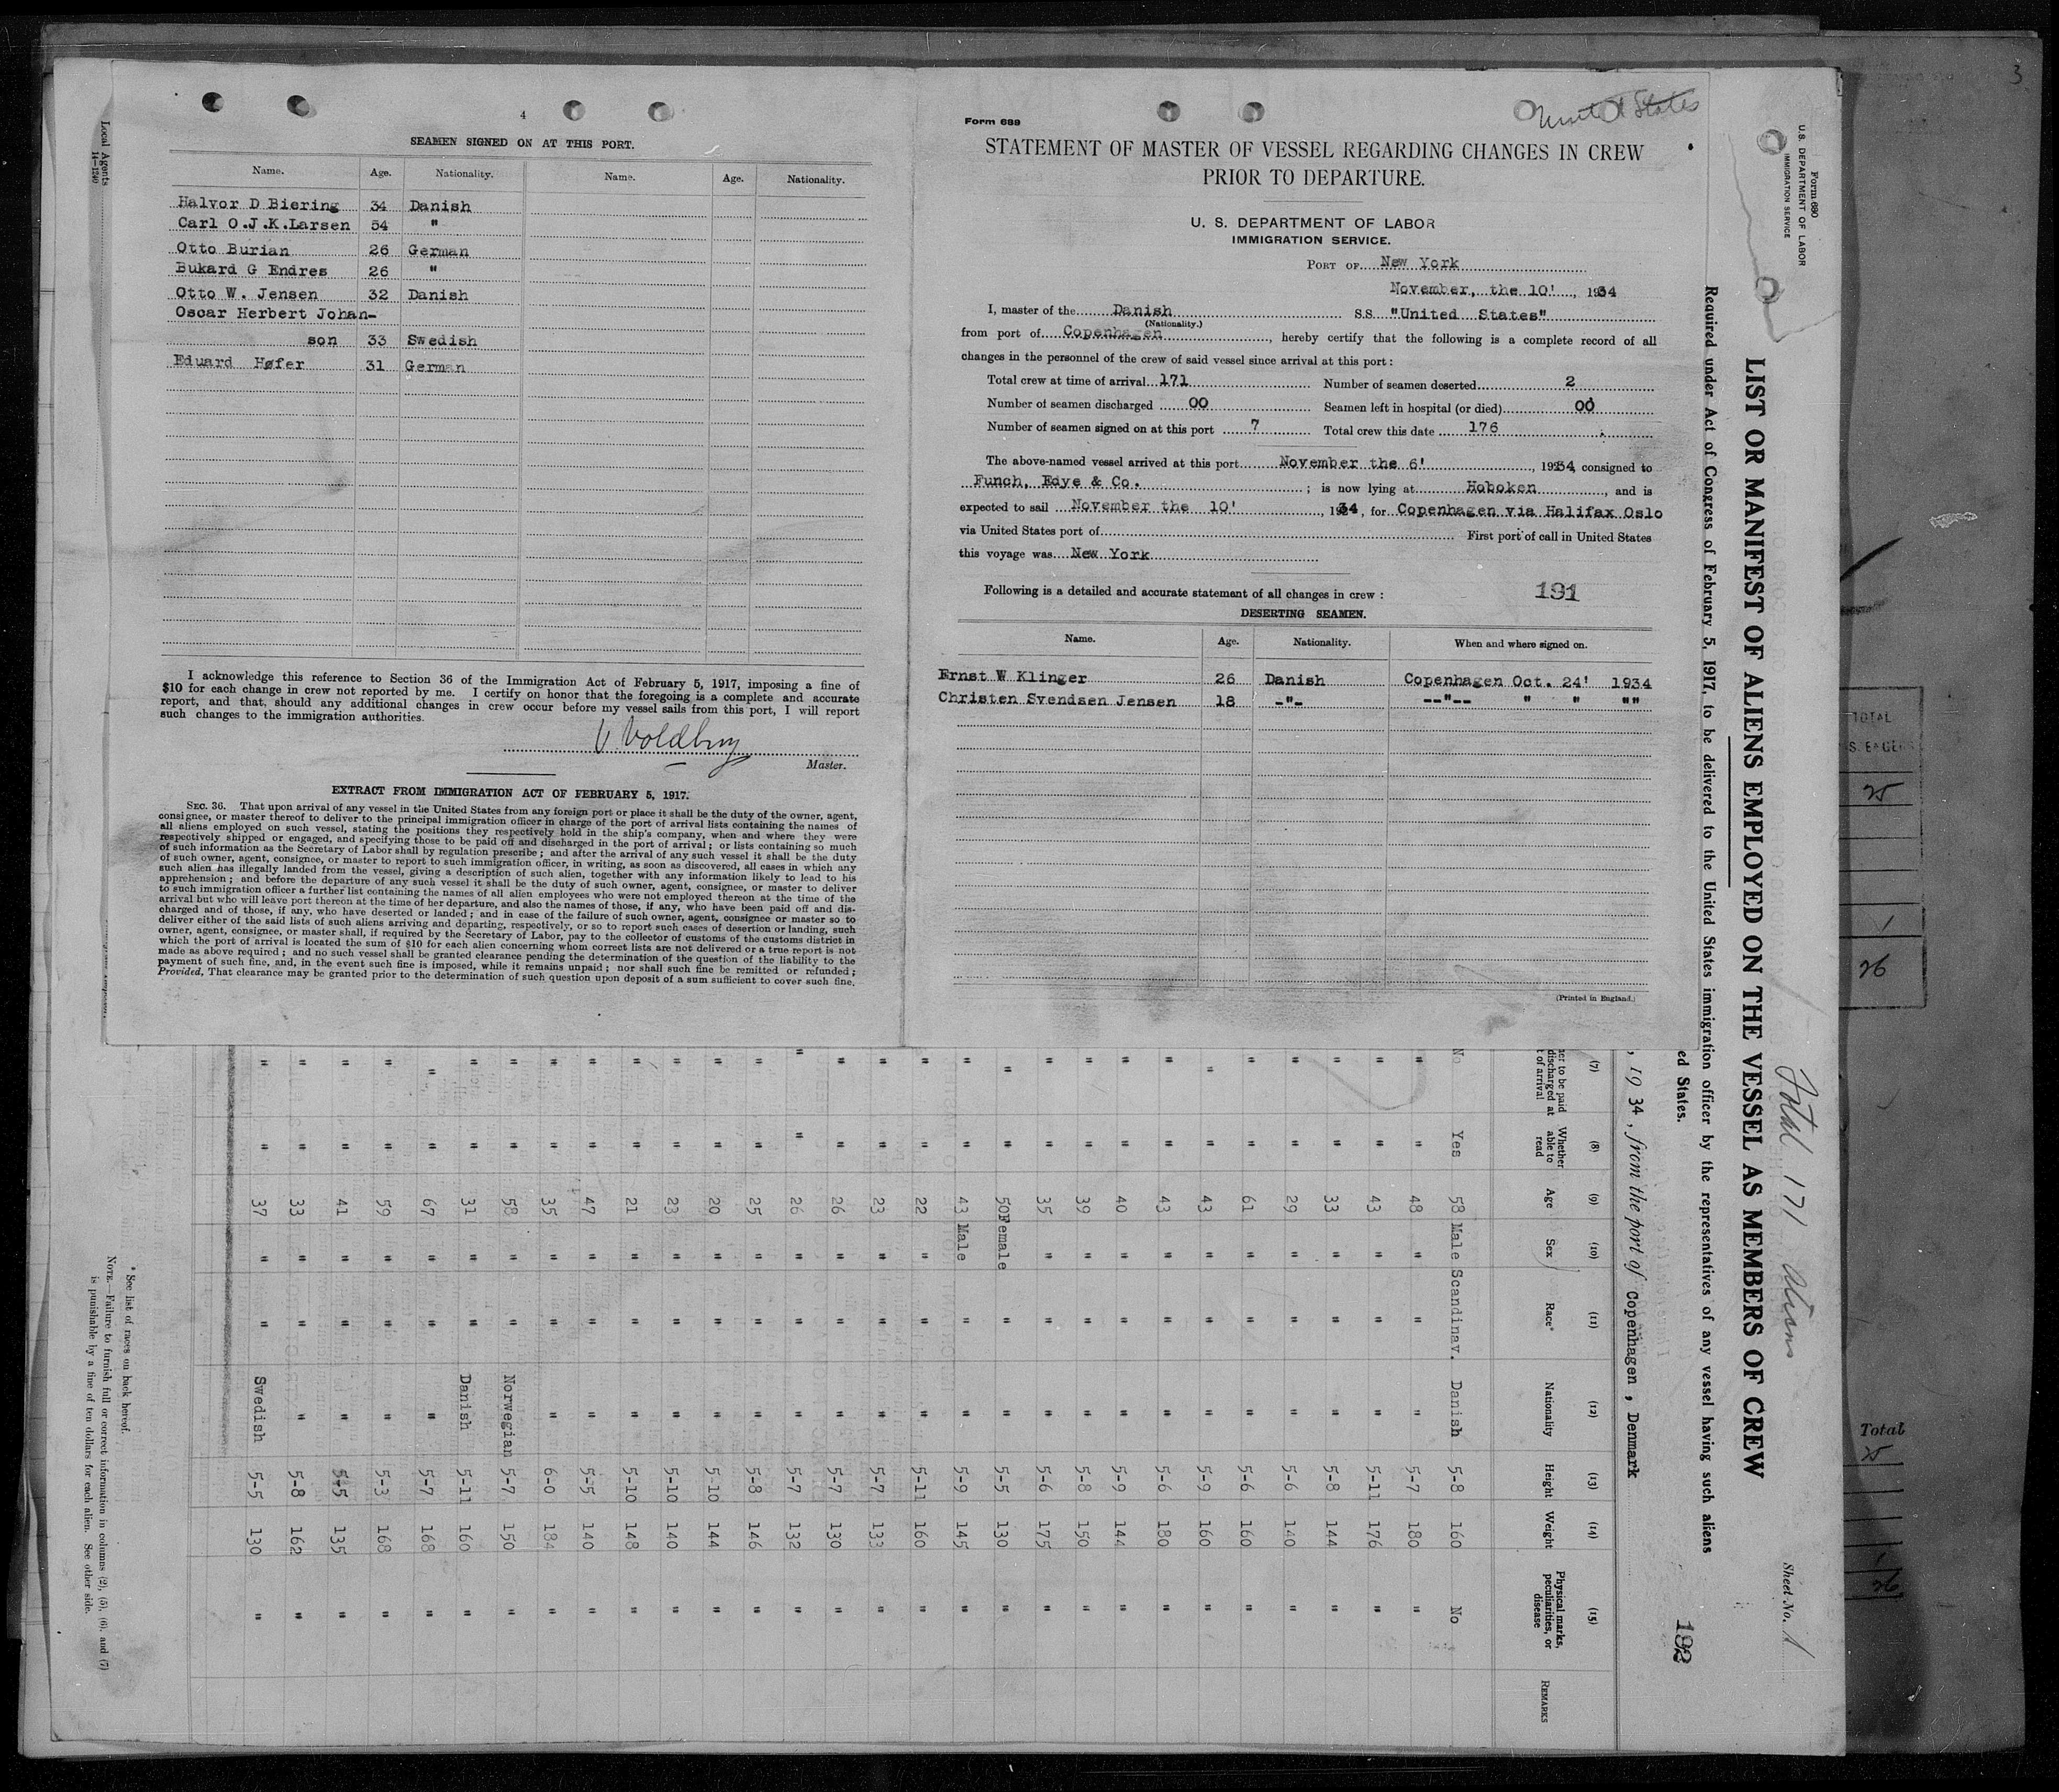 4
SEAMEN SIGNED ON AT THIS PORT.
Name. Age. Nationality. Name. Age. Nationality.
Halvor D Biering 34 Danish
Carl O.J.K.Larsen 54 "
Otto Burian 26 German
Bukard G Endres 26 "
Otto W. Jensen 32 Danish
Oscar Herbert Johan-
son 33 Swedish
Eduard Høfer 31 German
I acknowledge this reference to Section 36 of the Immigration Act of February 5, 1917, imposing a fine of
$10 for each change in crew not reported by me. I certify on honor that the foregoing is a complete and accurate
report, and that, should any additional changes in crew occur before my vessel sails from this port, I will report
such changes to the immigration authorities.
V Voldborg
Master.
EXTRACT FROM IMMIGRATION ACT OF FEBRUARY 5, 1917.
SEC. 36. That upon arrival of any vessel in the United States from any foreign port or place it shall be the duty of the owner, agent,
consignee, or master thereof to deliver to the principal immigration officer in charge of the port of arrival lists containing the names of
all aliens employed on such vessel, stating the positions they respectively hold in the ship's company, when and where they were
respectively shipped or engaged, and specifying those to be paid off and discharged in the port of arrival; or lists containing so much
of such information as the Secretary of Labor shall by regulation prescribe; and after the arrival of any such vessel it shall be the duty
of such owner, agent, consignee, or master to report to such immigration officer, in writing, as soon as discovered, all cases in which any
such alien has illegally landed from the vessel, giving a description of such alien, together with any information likely to lead to his
apprehension; and before the departure of any such vessel it shall be the duty of such owner, agent, consignee, or master to deliver
to such immigration officer a further list containing the names of all alien employees who were not employed thereon at the time of the
arrival but who will leave port thereon at the time of her departure, and also the names of those, if any, who have been paid off and dis-
charged and of those, if any, who have deserted or landed; and in case of the failure of such owner, agent, consignee or master so to
deliver either of the said lists of such aliens arriving and departing, respectively, or so to report such cases of desertion or landing, such
owner, agent, consignee, or master shall, if required by the Secretary of Labor, pay to the collector of customs of the customs district in
which the port of arrival is located the sum of $10 for each alien concerning whom correct lists are not delivered or a true report is not
made as above required; and no such vessel shall be granted clearance pending the determination of the question of the liability to the
payment of such fine, and, in the event such fine is imposed, while it remains unpaid; nor shall such fine be remitted or refunded;
Provided, That clearance may be granted prior to the determination of such question upon deposit of a sum sufficient to cover such fine.
Local Agents
14—1240
Form 689
United States
STATEMENT OF MASTER OF VESSEL REGARDING CHANGES IN CREW
PRIOR TO DEPARTURE.
U. S. DEPARTMENT OF LABOR
IMMIGRATION SERVICE.
PORT OF New York
November, the 10', 1934
I, master of the Danish S.S. "United States"
(Nationality.)
from port of Copenhagen, hereby certify that the following is a complete record of all
changes in the personnel of the crew of said vessel since arrival at this port:
Total crew at time of arrival 171 Number of seamen deserted 2
Number of seamen discharged 00 Seamen left in hospital (or died) 00
Number of seamen signed on at this port 7 Total crew this date 176
The above-named vessel arrived at this port November the 6', 1934, consigned to
Funch, Edye & Co. ; is now lying at Hoboken, and is
expected to sail November the 10', 1934, for Copenhagen via Halifax Oslo
via United States port of First port of call in United States
this voyage was New York
Following is a detailed and accurate statement of all changes in crew: 191
DESERTING SEAMEN.
Name. Age. Nationality. When and where signed on.
Ernst W Klinger 26 Danish Copenhagen Oct. 24' 1934
Christen Svendsen Jensen 18 -"- --"-- " " ""
(Printed in England.)
Form 680
U. S. DEPARTMENT OF LABOR
IMMIGRATION SERVICE
Total 171 Aliens
Sheet No. 1
LIST OR MANIFEST OF ALIENS EMPLOYED ON THE VESSEL AS MEMBERS OF CREW
Required under Act of Congress of February 5, 1917, to be delivered to the United States immigration officer by the representatives of any vessel having such aliens
ed States.
192
, 19 34, from the port of Copenhagen, Denmark
(7) (8) (9) (10) (11) (12) (13) (14) (15)
her to be paid discharged at t of arrival Whether able to read Age Sex Race* Nationality Height Weight Physical marks, peculiarities, or disease REMARKS
No Yes 58 Male Scandinav. Danish 5-8 160 No
" " 48 " " " 5-7 180 "
" " 43 " " " 5-11 176 "
" " 33 " " " 5-8 144 "
" " 29 " " " 5-6 140 "
" " 61 " " " 5-6 160 "
" " 43 " " " 5-9 160 "
" " 43 " " " 5-6 180 "
" " 40 " " " 5-9 144 "
" " 39 " " " 5-8 150 "
" " 35 " " " 5-6 175 "
" " 50 Female " " 5-5 130 "
" " 43 Male " " 5-9 145 "
" " 22 " " " 5-11 160 "
" " 23 " " " 5-7 133 "
" " 26 " " " 5-7 130 "
" " 26 " " " 5-7 132 "
" " 25 " " " 5-8 146 "
" " 20 " " " 5-10 144 "
" " 23 " " " 5-10 140 "
" " 21 " " " 5-10 148 "
" " 47 " " " 5-5 140 "
" " 35 " " " 6-0 184 "
" " 58 " " Norwegian 5-7 150 "
" " 31 " " Danish 5-11 160 "
" " 67 " " " 5-7 168 "
" " 59 " " " 5-3 168 "
" " 41 " " " 5-5 135 "
" " 33 " " " 5-8 162 "
" " 37 " " Swedish 5-5 130 "
* See list of races on back hereof.
NOTE.—Failure to furnish full or correct information in columns (2), (5), (6), and (7)
is punishable by a fine of ten dollars for each alien. See other side.
3
TOTAL
25
1
26
Total
25
1
26